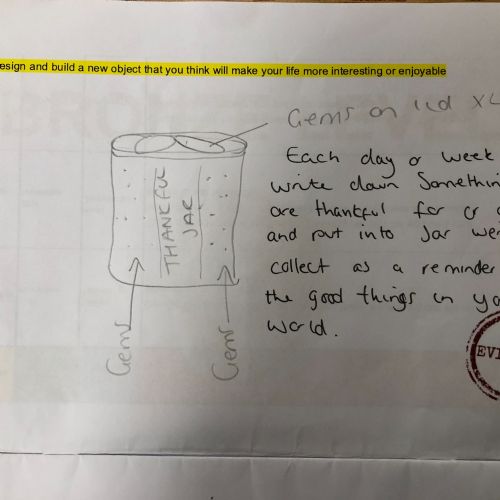 esign and build a new object that you think will make your life more interesting or enjoyable
Gems on lid
Each day or week
write down Somethin
are thankful for or
and put into Jar
collect as a reminder
the good things in yo
world.
THANKFUL
JAR
Gems
Gems
EVI